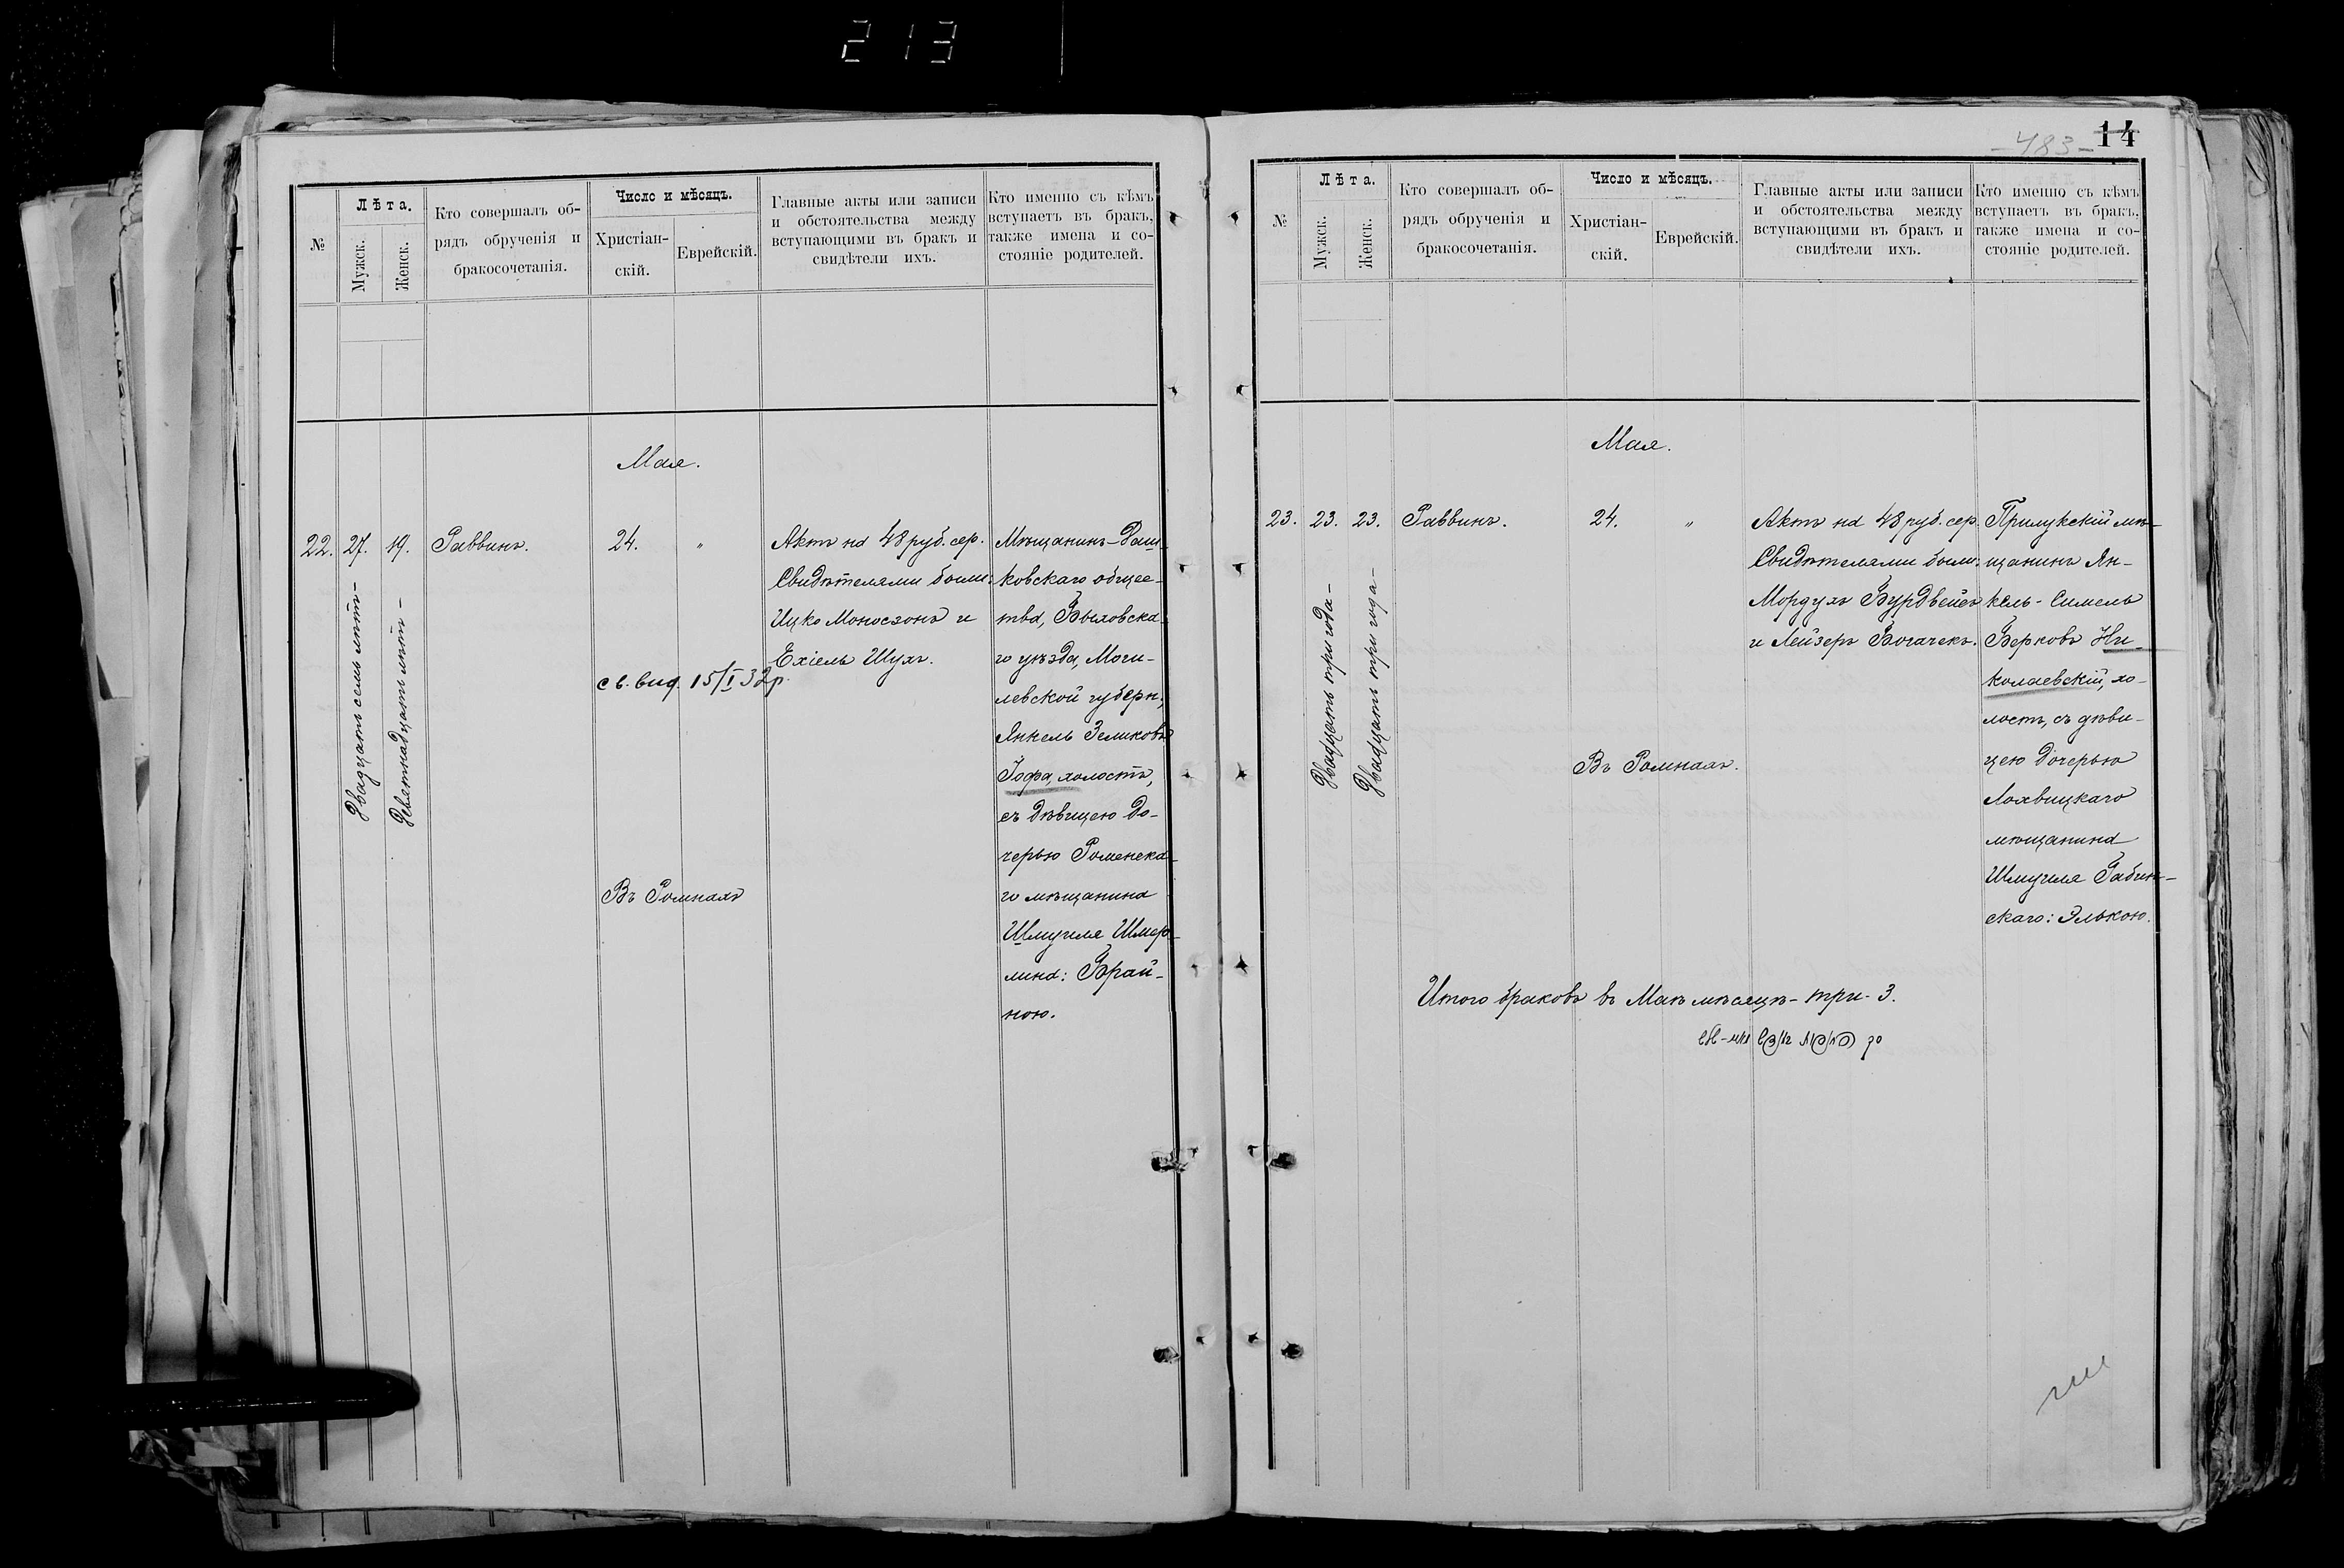 213
№
Лѣта.
Мужск.
Женск.
Кто совершалъ об-
рядъ обрученія и
бракосочетанія.
Число и мѣсяцъ.
Христіан-
скій.
Еврейскій.
Главные акты или записи
и обстоятельства между
вступающими въ бракъ и
свидѣтели ихъ.
Кто именно съ кѣмъ
вступаетъ въ бракъ,
также имена и со-
стояніе родителей.
Мая.
22.
27.
Двадцать семь лѣтъ-
19.
Девятнадцать лѣтъ-
Раввинъ.
24.
"
св. выд. 15/I 32 р.
Въ Ромнахъ
Актъ на 48 руб. сер.
Свидѣтелями были:
Ицко Моносзонъ и
Ехіель Шухъ.
Мѣщанинъ Даш-
ковскаго общес-
тва, Быховска-
го уѣзда, Моги-
левской губерн.,
Янкель Зеликовъ
Іофа, холостъ,
съ дѣвицею до-
черью Роменска-
го мѣщанина
Шмуиля Шмер-
лина: Брай-
ною.
-483-
14
№
Лѣта.
Мужск.
Женск.
Кто совершалъ об-
рядъ обрученія и
бракосочетанія.
Число и мѣсяцъ.
Христіан-
скій.
Еврейскій.
Главные акты или записи
и обстоятельства между
вступающими въ бракъ и
свидѣтели ихъ.
Кто именно съ кѣмъ
вступаетъ въ бракъ,
также имена и со-
стояніе родителей.
Мая.
23.
23.
Двадцать три года-
23.
Двадцать три года-
Раввинъ.
24.
"
Въ Ромнахъ.
Актъ на 48 руб. сер.
Свидѣтелями были:
Мордухъ Бурдвейсъ
и Лейзеръ Богачекъ.
Прилукскій мѣ-
щанинъ Ян-
кель-Симель
Берковъ Ни-
колаевскій, хо-
лостъ, съ дѣви-
цею дочерью
Лохвицкаго
мѣщанина
Шмуиля Рабин-
скаго: Элькою.
Итого браковъ въ Маѣ мѣсяцѣ - три - 3.